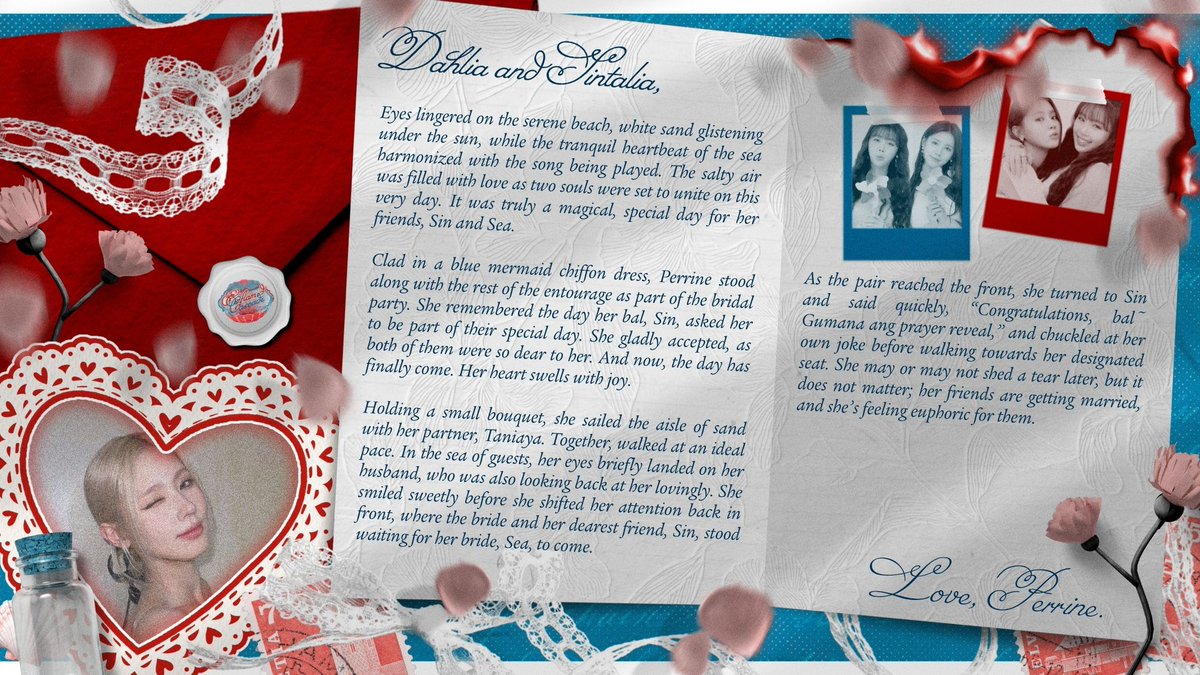 Dahlia and Sintalia,
Eyes lingered on the serene beach, white sand glistening
under the sun, while the tranquil heartbeat of the sea
harmonized with the song being played. The salty air
was filled with love as two souls were set to unite on this
very day. It was truly a magical, special day for her
friends, Sin and Sea.
Clad in a blue mermaid chiffon dress, Perrine stood
along with the rest of the entourage as part of the bridal
party. She remembered the day her bal, Sin, asked her
to be part of their special day. She gladly accepted, as
both of them were so dear to her. And now, the day has
finally come. Her heart swells with joy.
Holding a small bouquet, she sailed the aisle of sand
with her partner, Taniaya. Together, walked at an ideal
pace. In the sea of guests, her eyes briefly landed on her
husband, who was also looking back at her lovingly. She
smiled sweetly before she shifted her attention back in
front, where the bride and her dearest friend, Sin, stood
waiting for her bride, Sea, to come.
As the pair reached the front, she turned to Sin
and said quickly, “Congratulations, bal~
Gumana ang prayer reveal,” and chuckled at her
own joke before walking towards her designated
seat. She may or may not shed a tear later, but it
does not matter; her friends are getting married,
and she’s feeling euphoric for them.
Love, Perrine.